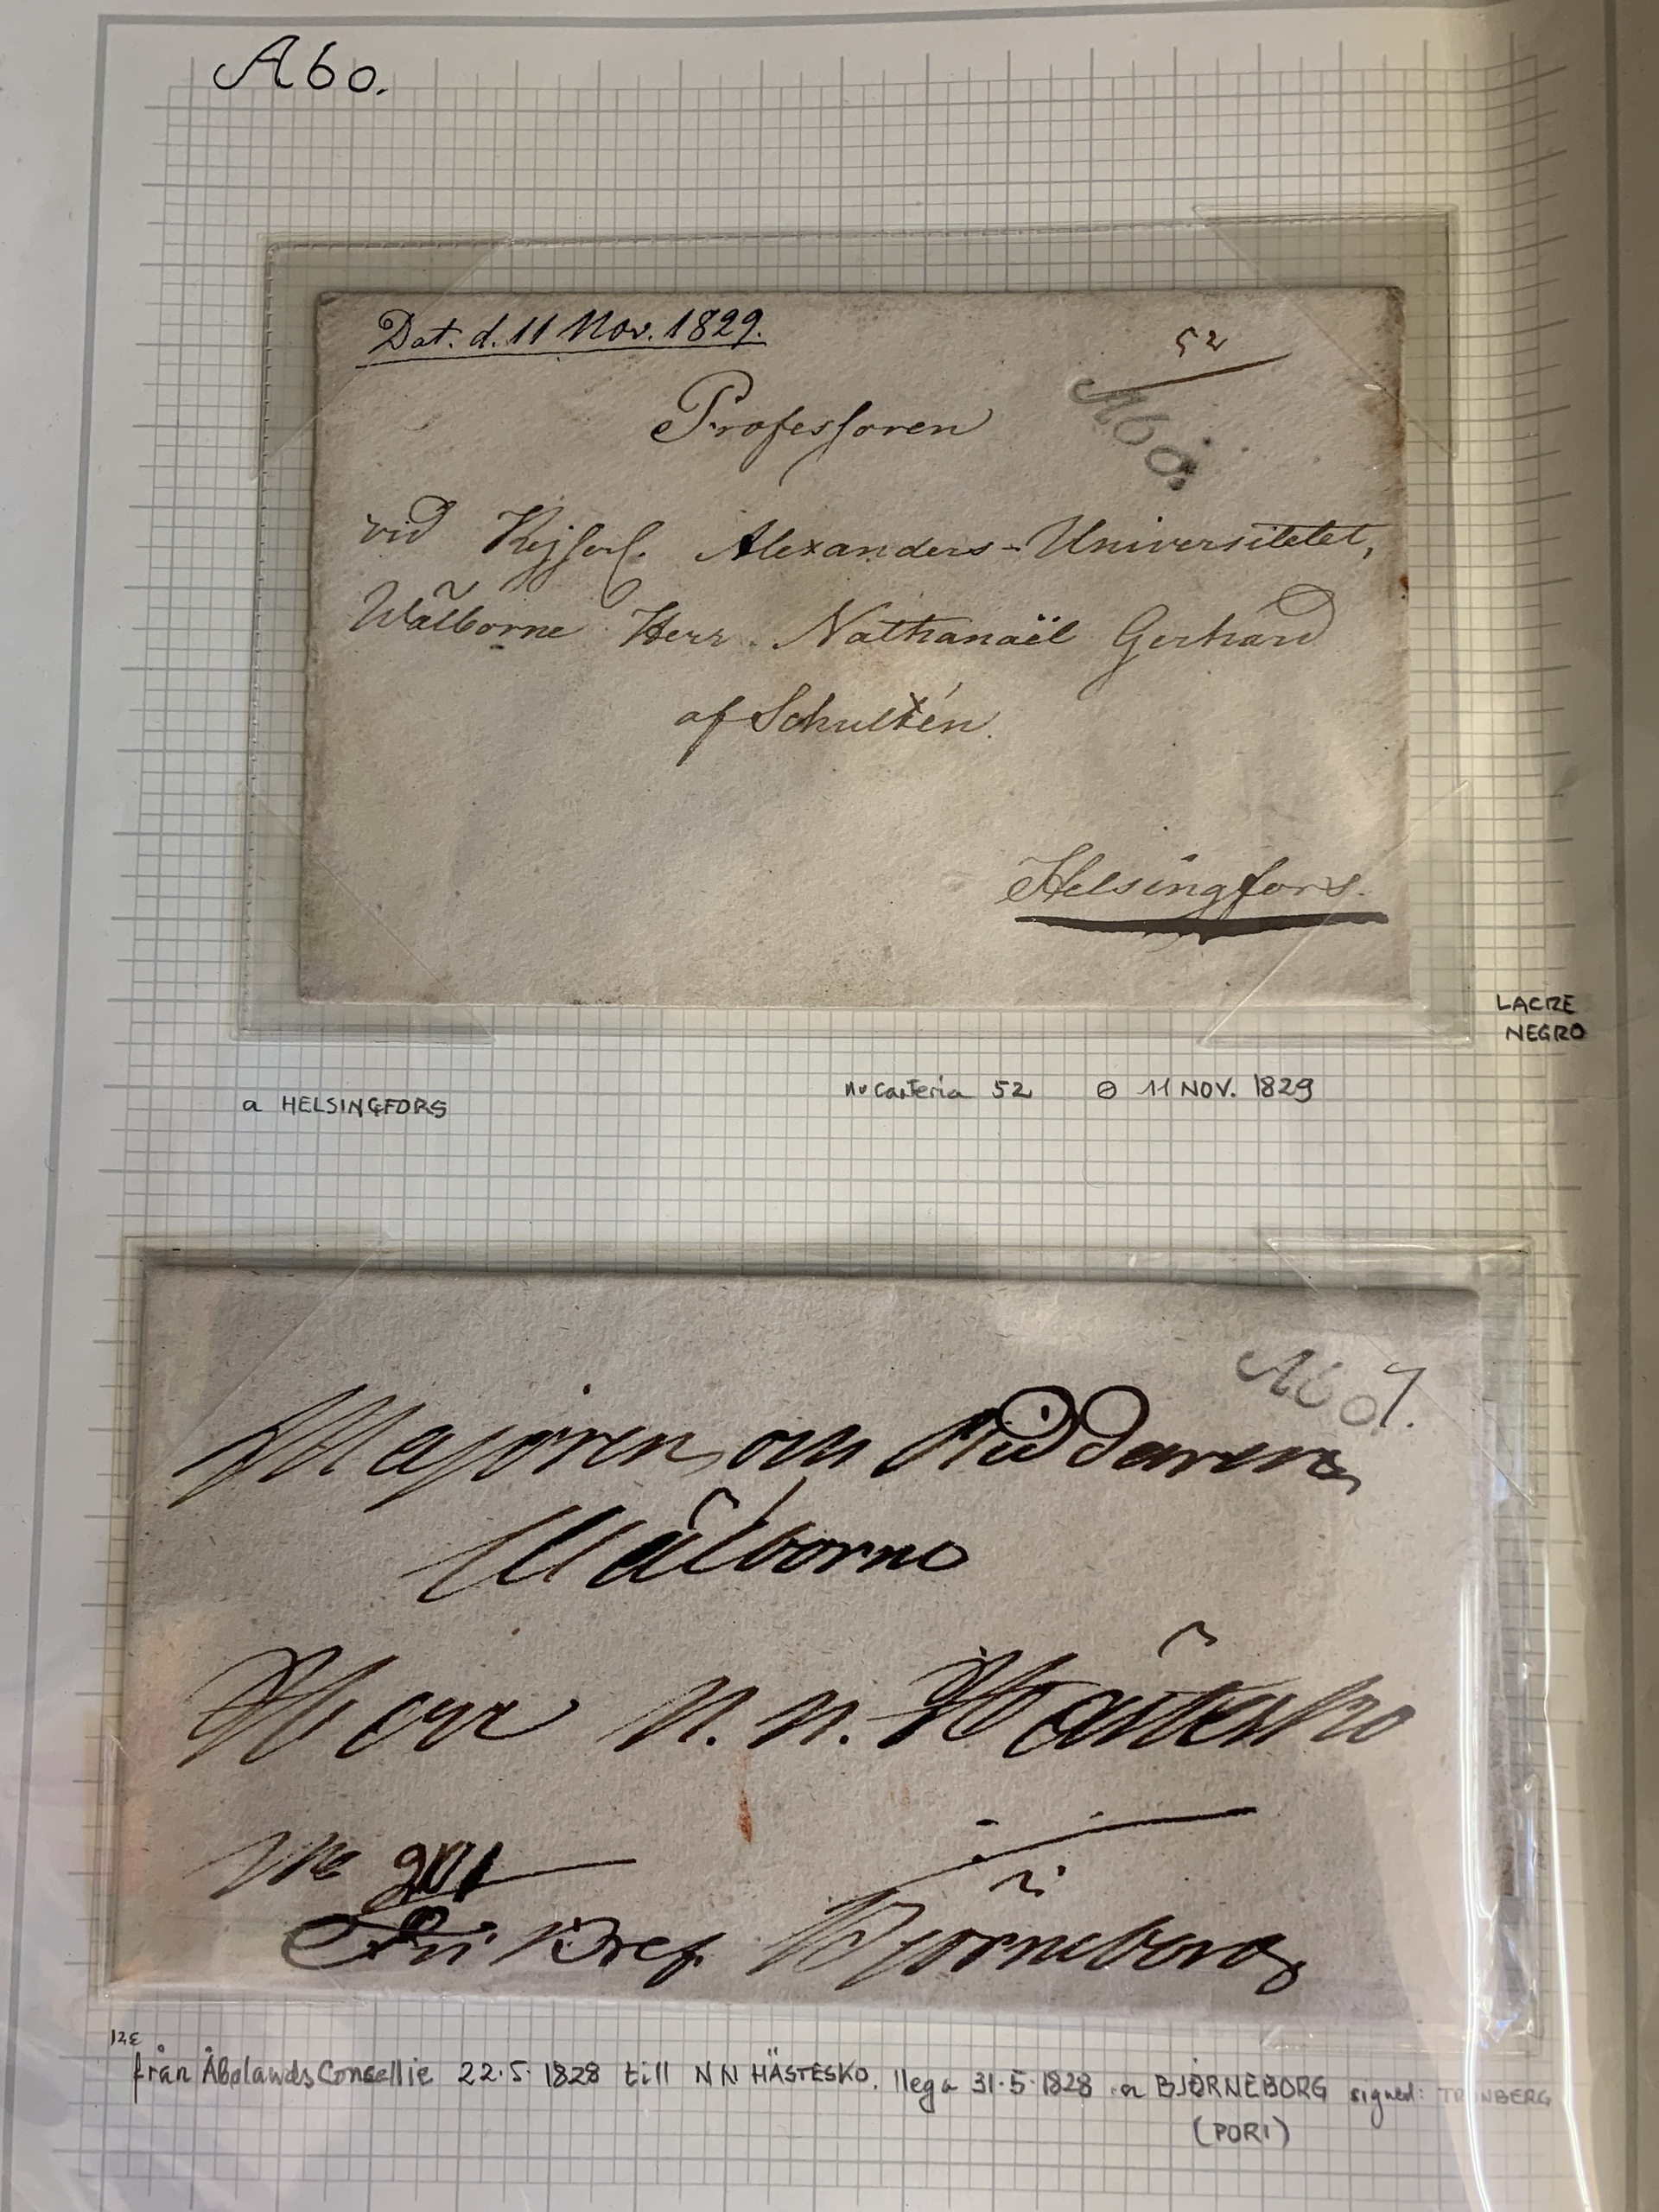 Abo.
Dat. d. 11 Nov. 1829.
52
Professoren
Abo.
vid Kejserl. Alexanders-Universitetet,
Wälborne Herr Nathanaël Gerhard
af Schultén.
Helsingfors.
LACRE
NEGRO
a HELSINGFORS
nº carteria 52 11 NOV. 1829
Abo.
Majoren och Riddaren
Wälborne
Herr N. N. Hästesko
Fri Bref. Björneborg
12€
från ÅbolandsConsellie 22.5.1828 till NN HÄSTESKO. llega 31.5.1828 a BJÖRNEBORG signed: TRNBERG
(PORI)